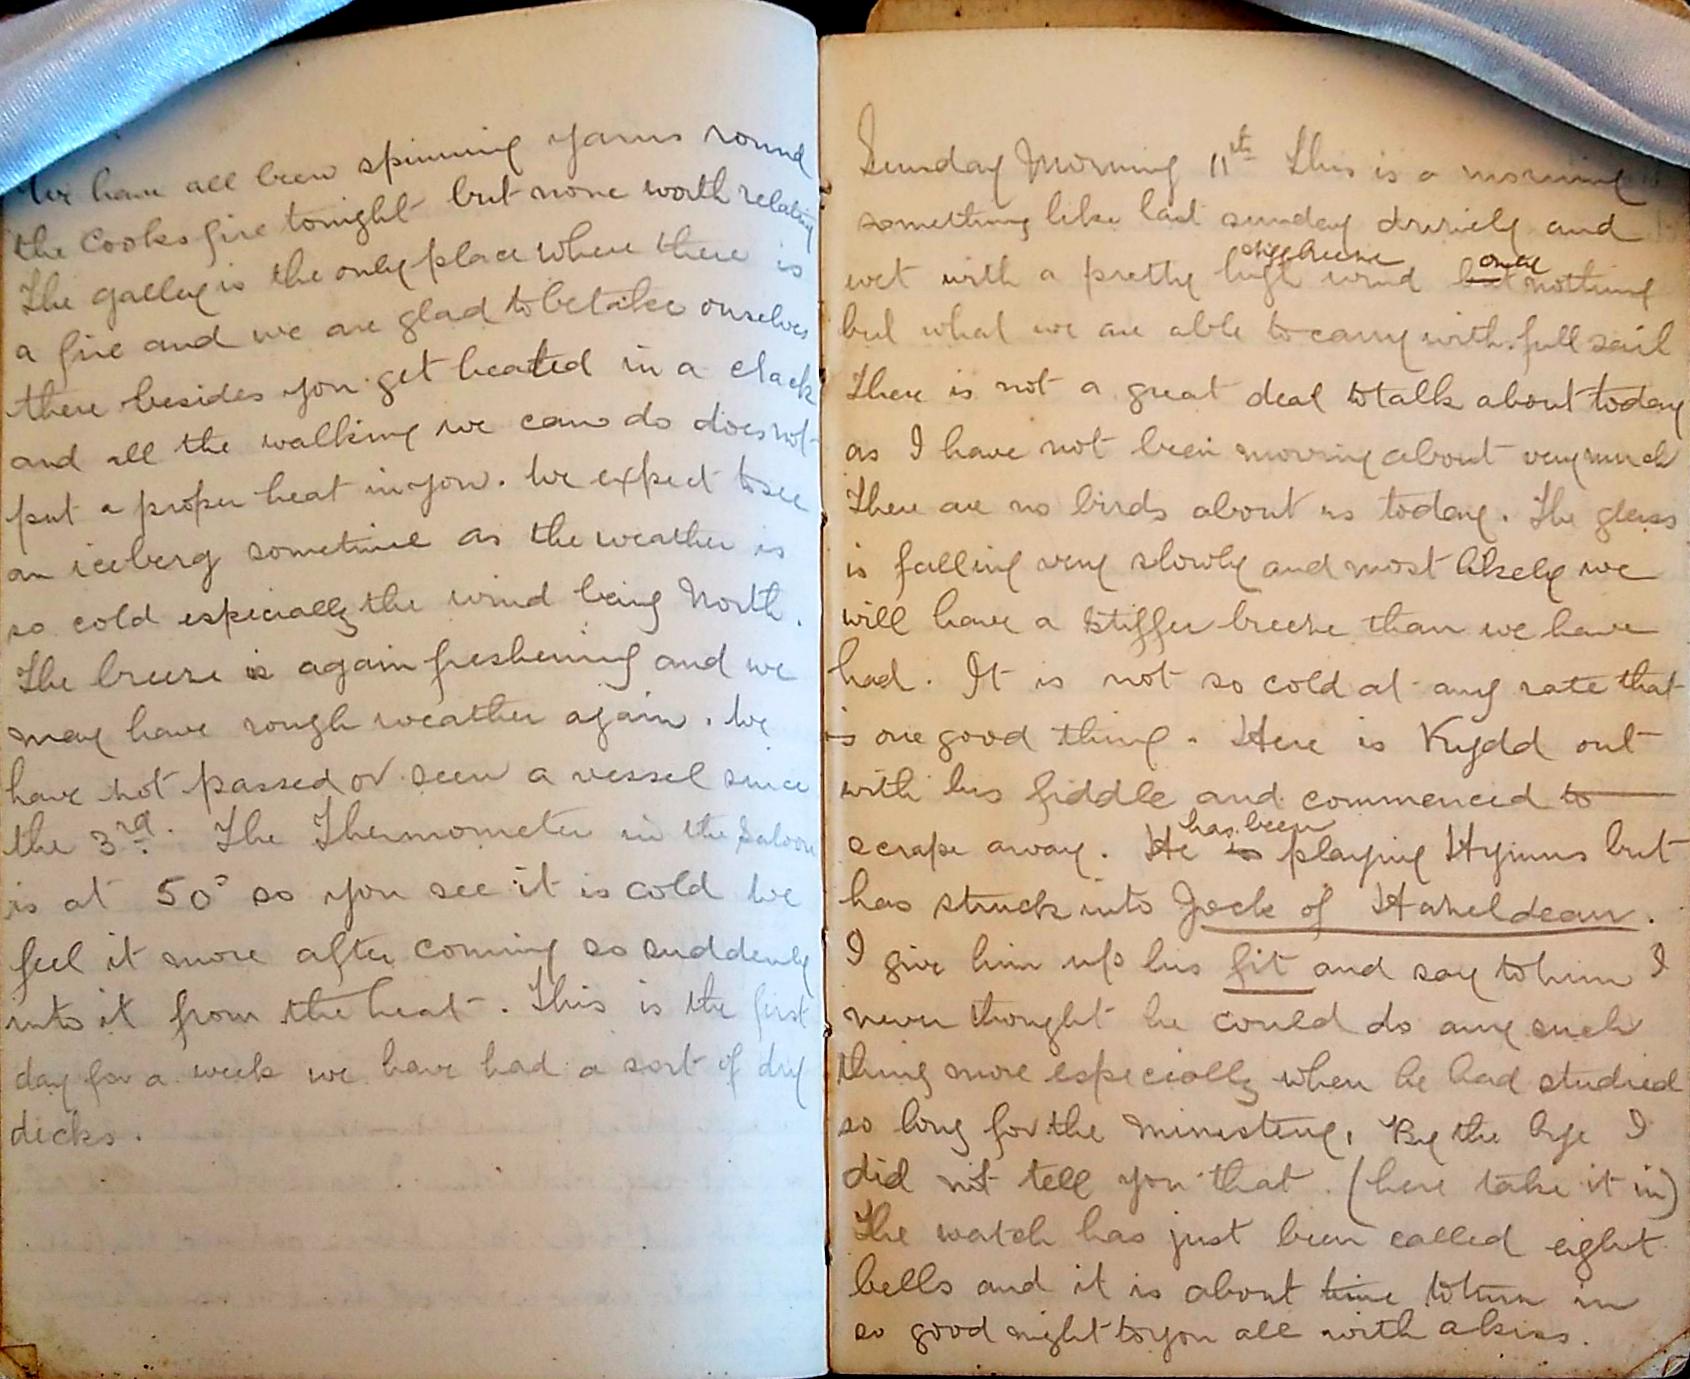 We have all been spinning yarns round
the Cooks fire tonight but none worth relating
The galley is the only place where there is
a fire and we are glad to betake ourselves
there besides you get heated in a clack
and all the walking we can do does not
put a proper heat in you. We expect to see
an iceberg sometime as the weather is
so cold especially the wind being North.
The breeze is again freshening and we
may have rough weather again. We
have not passed or seen a vessel since
the 3rd. The Thermometer in the Saloon
is at 50° so you see it is cold We
feel it more after coming so suddenly
into it from the heat. This is the first
day for a week we have had a sort of dry
decks.
Sunday Morning 11th This is a morning
something like last sunday drizzely and
wet with a pretty high wind nothing
but what we are able to carry with full sail
There is not a great deal to talk about today
as I have not been moving about very much
There are no birds about us today. The glass
is falling very slowly and most likely we
will have a stiffer breeze than we have
had. It is not so cold at any rate that
is one good thing. Here is Kydd out
with his fiddle and commenced to
scrape away. He is has been playing Hymns but
has struck into Jock of Hazeldean.
I give him up his fit and say to him I
never thought he could do any such
thing more especially when he had studied
so long for the ministery, By the bye I
did not tell you that. (here take it in)
The watch has just been called eight
bells and it is about time to turn in
so good night to you all with a kiss.